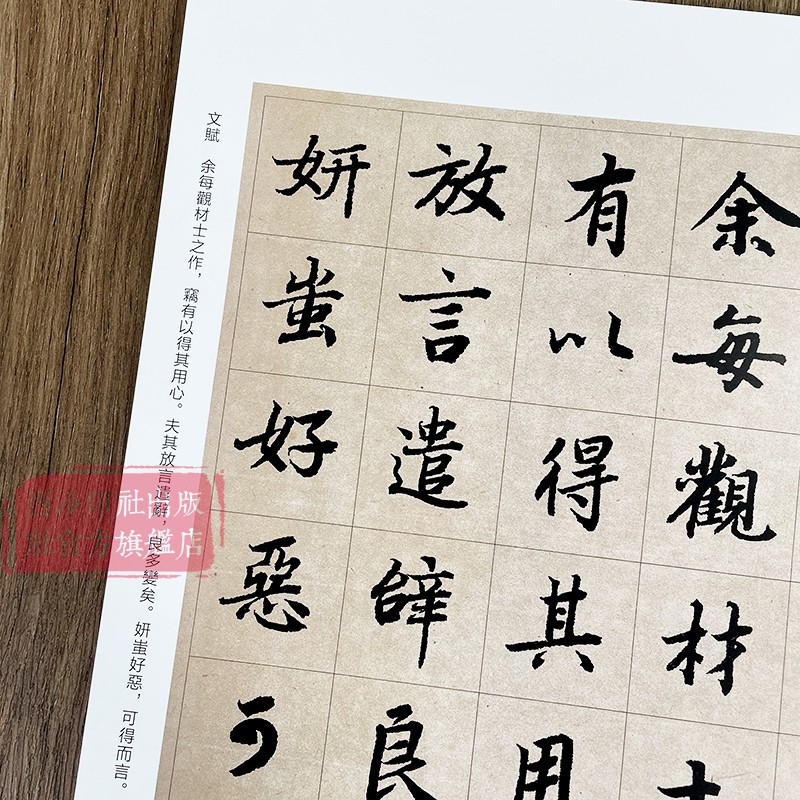 余每觀材士
有以得其用
放言遣辭良
妍蚩好惡可
文賦 余每觀材士之作，竊有以得其用心。夫其放言遣辭，良多變矣。妍蚩好惡，可得而言。
社出版
官方旗艦店